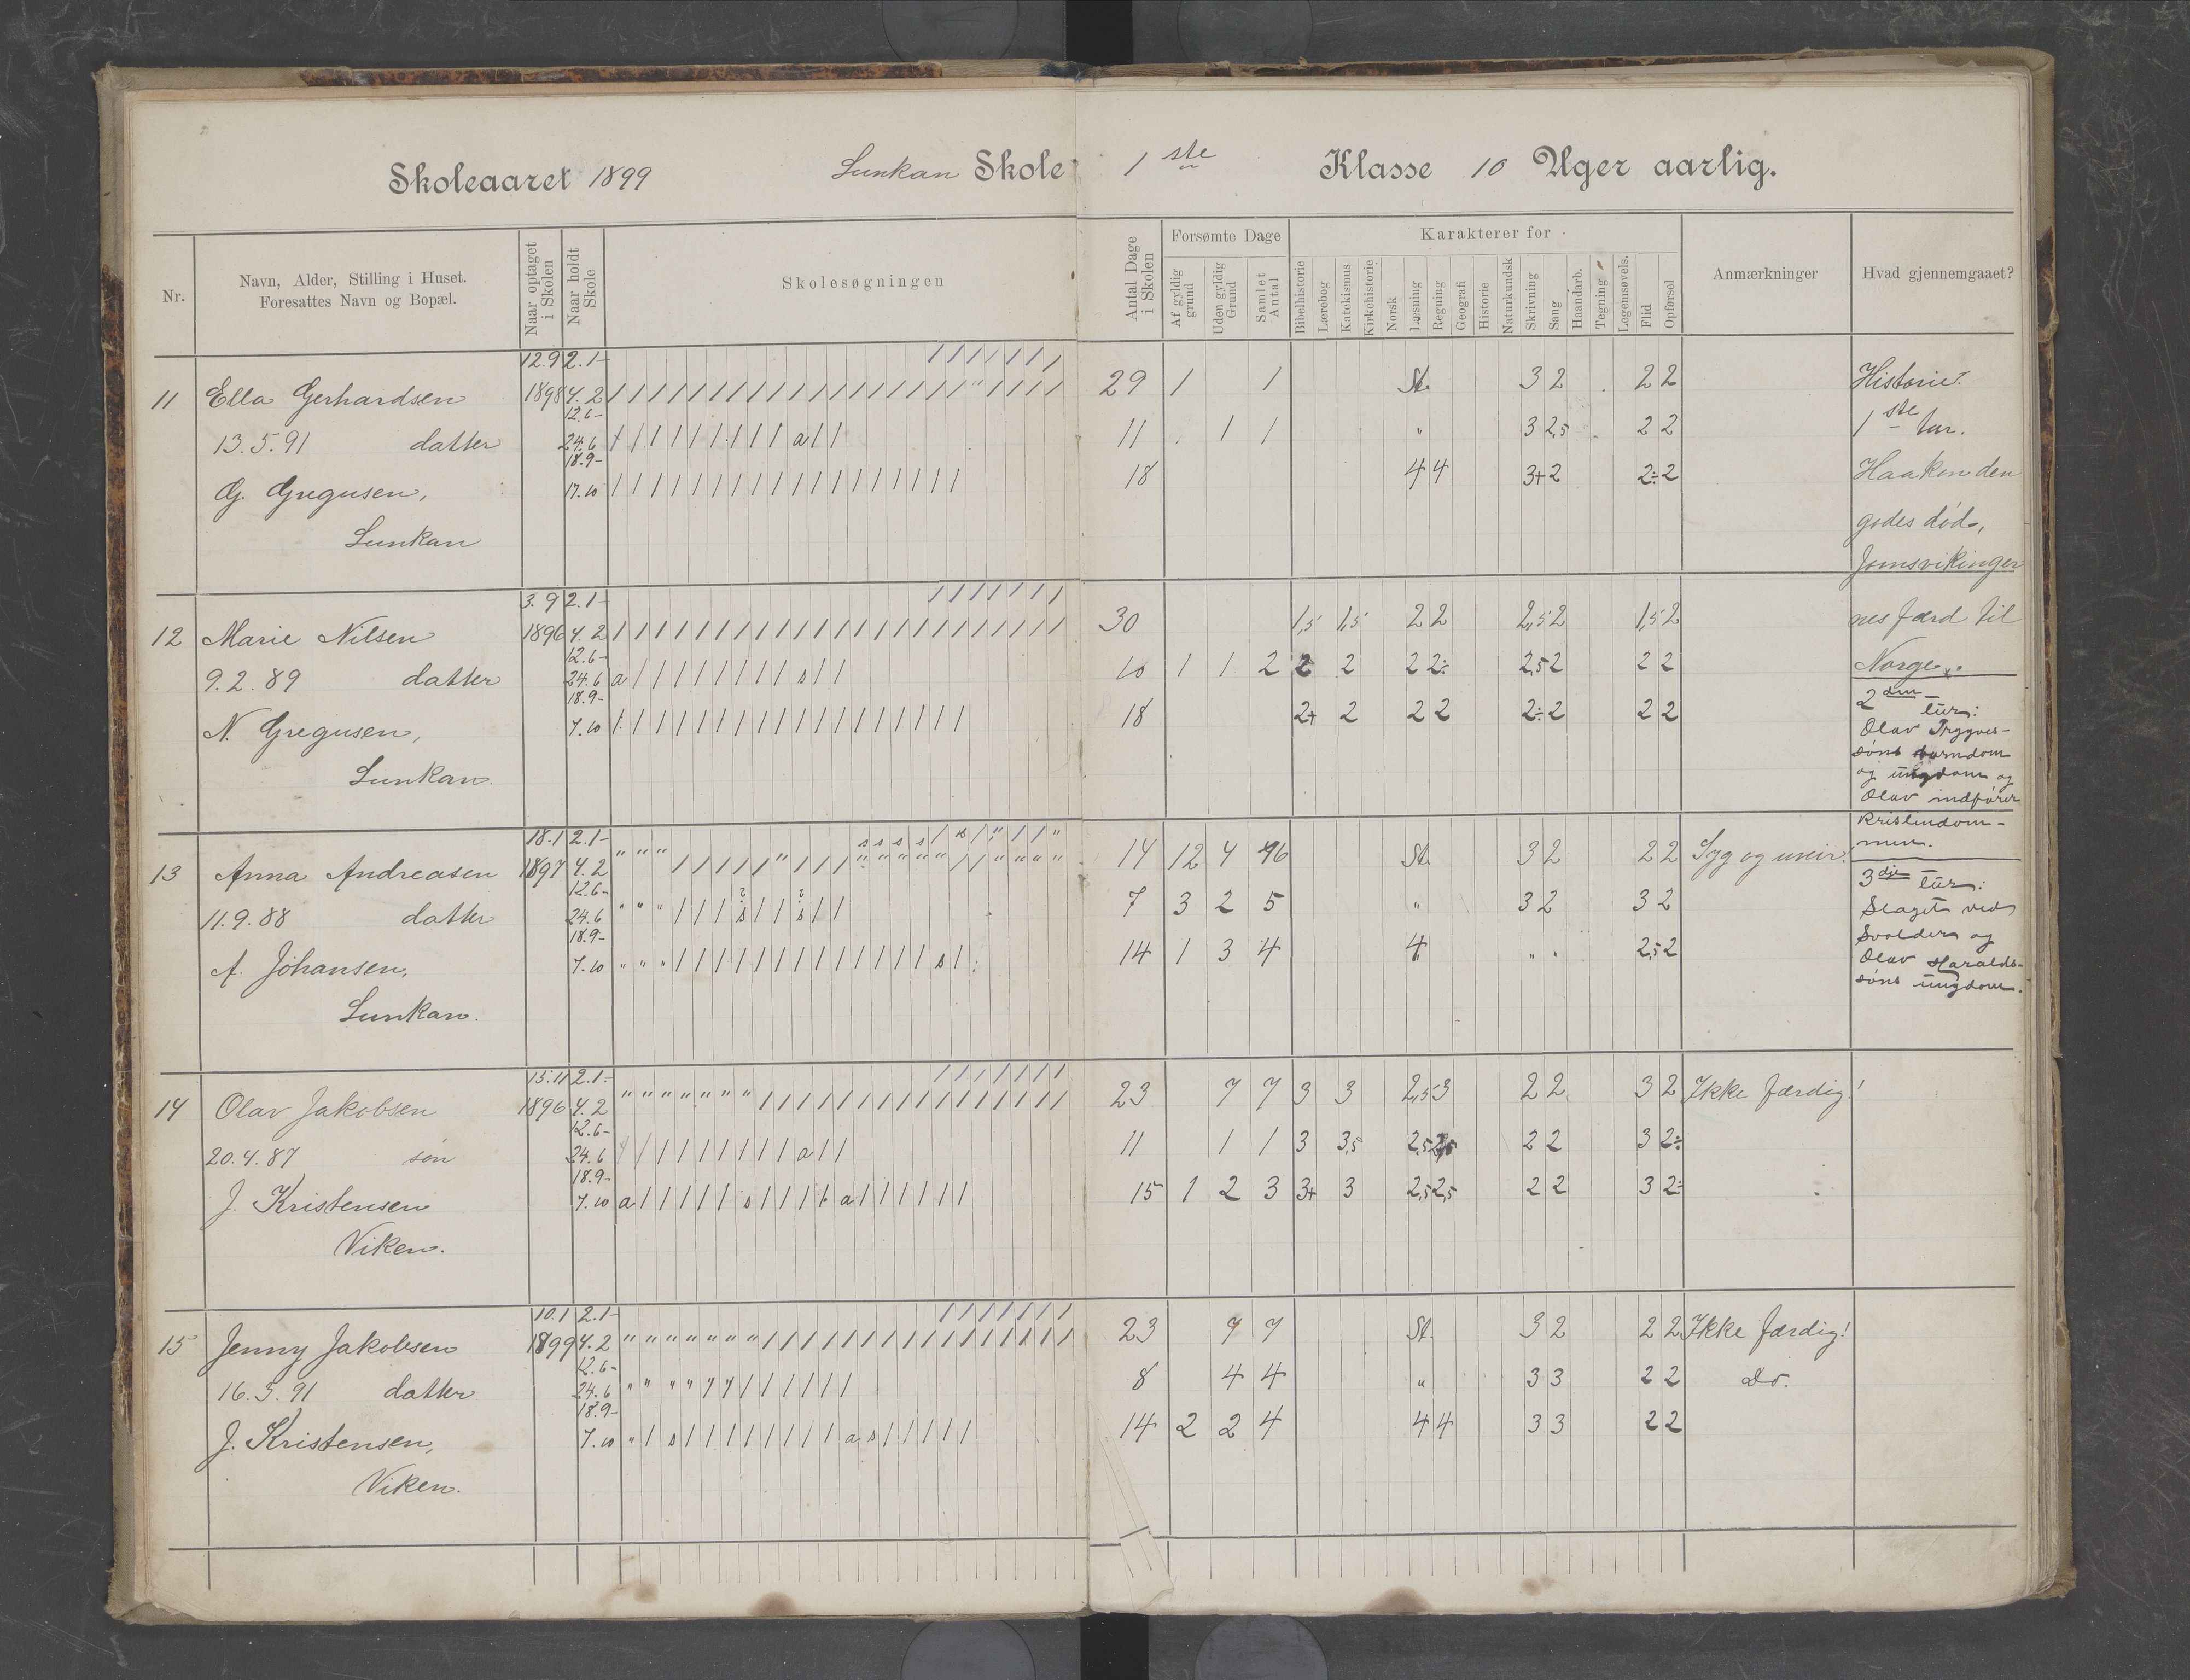 Skoleaaret 1899 Lunkan Skole 1 ste Klasse 10 Uger aarlig.
Nr.
Navn, Alder, Stilling i Huset.
Foresattes Navn og Bopæl.
Naar optaget
i Skolen
Naar holdt
Skole
Skolesøgningen
Antal Dage
i Skolen
Forsømte Dage
Af gyldig
grund
Uden gyldig
Grund
Samlet
Antal
Karakterer for
Bibelhistorie
Lærebog
Katekismus
Kirkehistorie
Norsk
Læsning
Regning
Geografi
Historie
Naturkundsk
Skrivning
Sang
Haandarb.
Tegning
Legemsøvels.
Flid
Opførsel
Anmærkninger
Hvad gjennemgaaet?
12.9 2.1- / / / / / / /
11 Ella Gerhardsen 1898 4.2 / / / / / / / / / / / / / / / / / / " / / / / 29 1 1 St. 3 2 2 2
12.6-
13.5.91 datter 24.6 / / / / / / / / / a / / 11 1 1 " 3 2,5 2 2
18.9-
G. Gregusen, 17.10 / / / / / / / / / / / / / / / / / / 18 4 4 3+ 2 2÷ 2
Lunkan
3.9 2.1- / / / / / / /
12 Marie Nilsen 1896 4.2 / / / / / / / / / / / / / / / / / / / / / / / 30 1,5 1,5 2 2 2,5 2 1,5 2
12.6-
9.2.89 datter 24.6 a / / / / / / / / s / / 10 1 1 2 2 2 2 2÷ 2,5 2 2 2
18.9-
N. Gregusen, 7.10 / / / / / / / / / / / / / / / / / / 18 2+ 2 2 2 2÷ 2 2 2
Lunkan.
18.1 2.1-
13 Anna Andreasen 1897 4.2 " " " / / / / / " / / / 14 12 4 16 St. 3 2 2 2 Syg og uveir!
12.6-
11.9.88 datter 24.6 " " " / / / s / / s / / 7 3 2 5 " 3 2 3 2
18.9-
A. Johansen, 7.10 " " " / / / / / / / / / / / / / s / 14 1 3 4 4 " " 2,5 2
Lunkan.
15.11 2.1- / / / / / / /
14 Olav Jakobsen 1896 4.2 " " " " " " " / / / / / / / / / / / / / / / / 23 7 7 3 3 2,5 3 2 2 3 2 Ikke færdig!
12.6-
20.4.87 søn 24.6 / / / / / / / / / a / / 11 1 1 3 3,5 2,5 2,5 2 2 3 2÷
18.9-
J. Kristensen 7.10 a / / / / / s / / / t a / / / / / / 15 1 2 3 3+ 3 2,5 2,5 2 2 3 2÷
Viken.
10.1 2.1- / / / / / / /
15 Jenny Jakobsen 1899 4.2 " " " " " " " / / / / / / / / / / / / / / / / 23 7 7 St. 3 2 2 2 Ikke færdig!
12.6-
16.5.91 datter 24.6 " " " " / / / / / / / / 8 4 4 " 3 3 2 2 Do.
18.9-
J. Kristensen, 7.10 " / s / / / / / / / / a s / / / / / 14 2 2 4 4 4 3 3 2 2
Viken.
Historie.
1 ste tur.
Haakon den
godes død,
Jomsvikinger
nes færd til
Norge.
2 den tur:
Olav Trygves-
søns barndom
og ungdom og
Olav indfører
kristendom-
men.
3 dje tur:
Slaget ved
Svolder og
Olav Haralds-
søns ungdom.